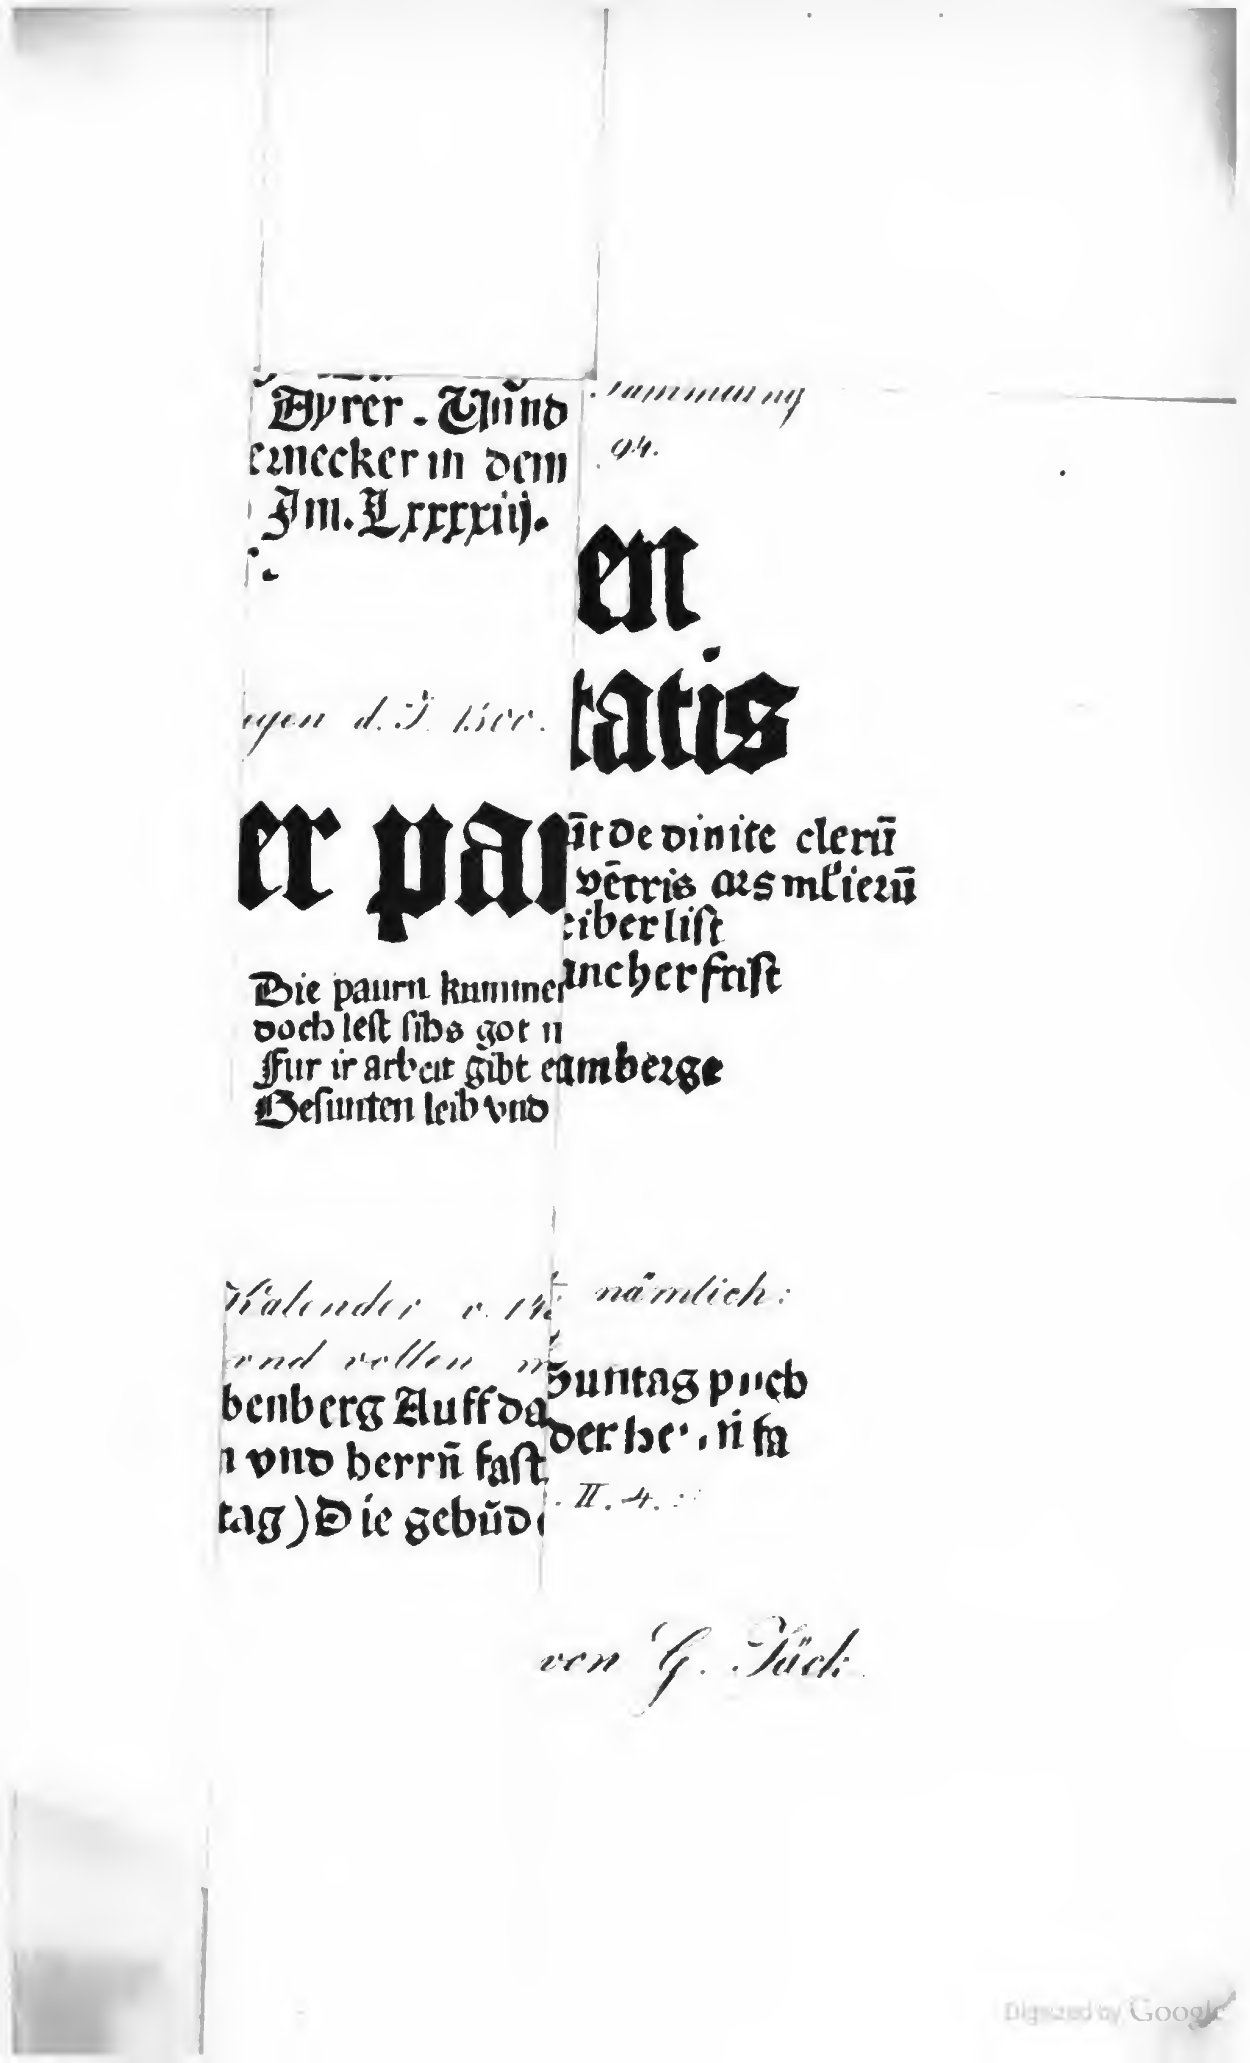 Ayrer. Vnnd
ernecker in dem
Im. Lxxxxiiij.
94.
en
tatis
gen d. J. 1500.
er pau
ūt de divite clerū
vētris ars ml'ierū
eiber list
ancher frist
Die paurn kummer
doch lest sihs got n
Fur ir arbeit gibt e
amberge
Gesunten leib vnd
Kalender v. 14
nämlich:
vnd vollen m
Suntag puch
benberg Auff da
der he
n vnd herrn̄ fast
tag) Die gebūd
II. 4.
von G. Jäck
Digitized by Google